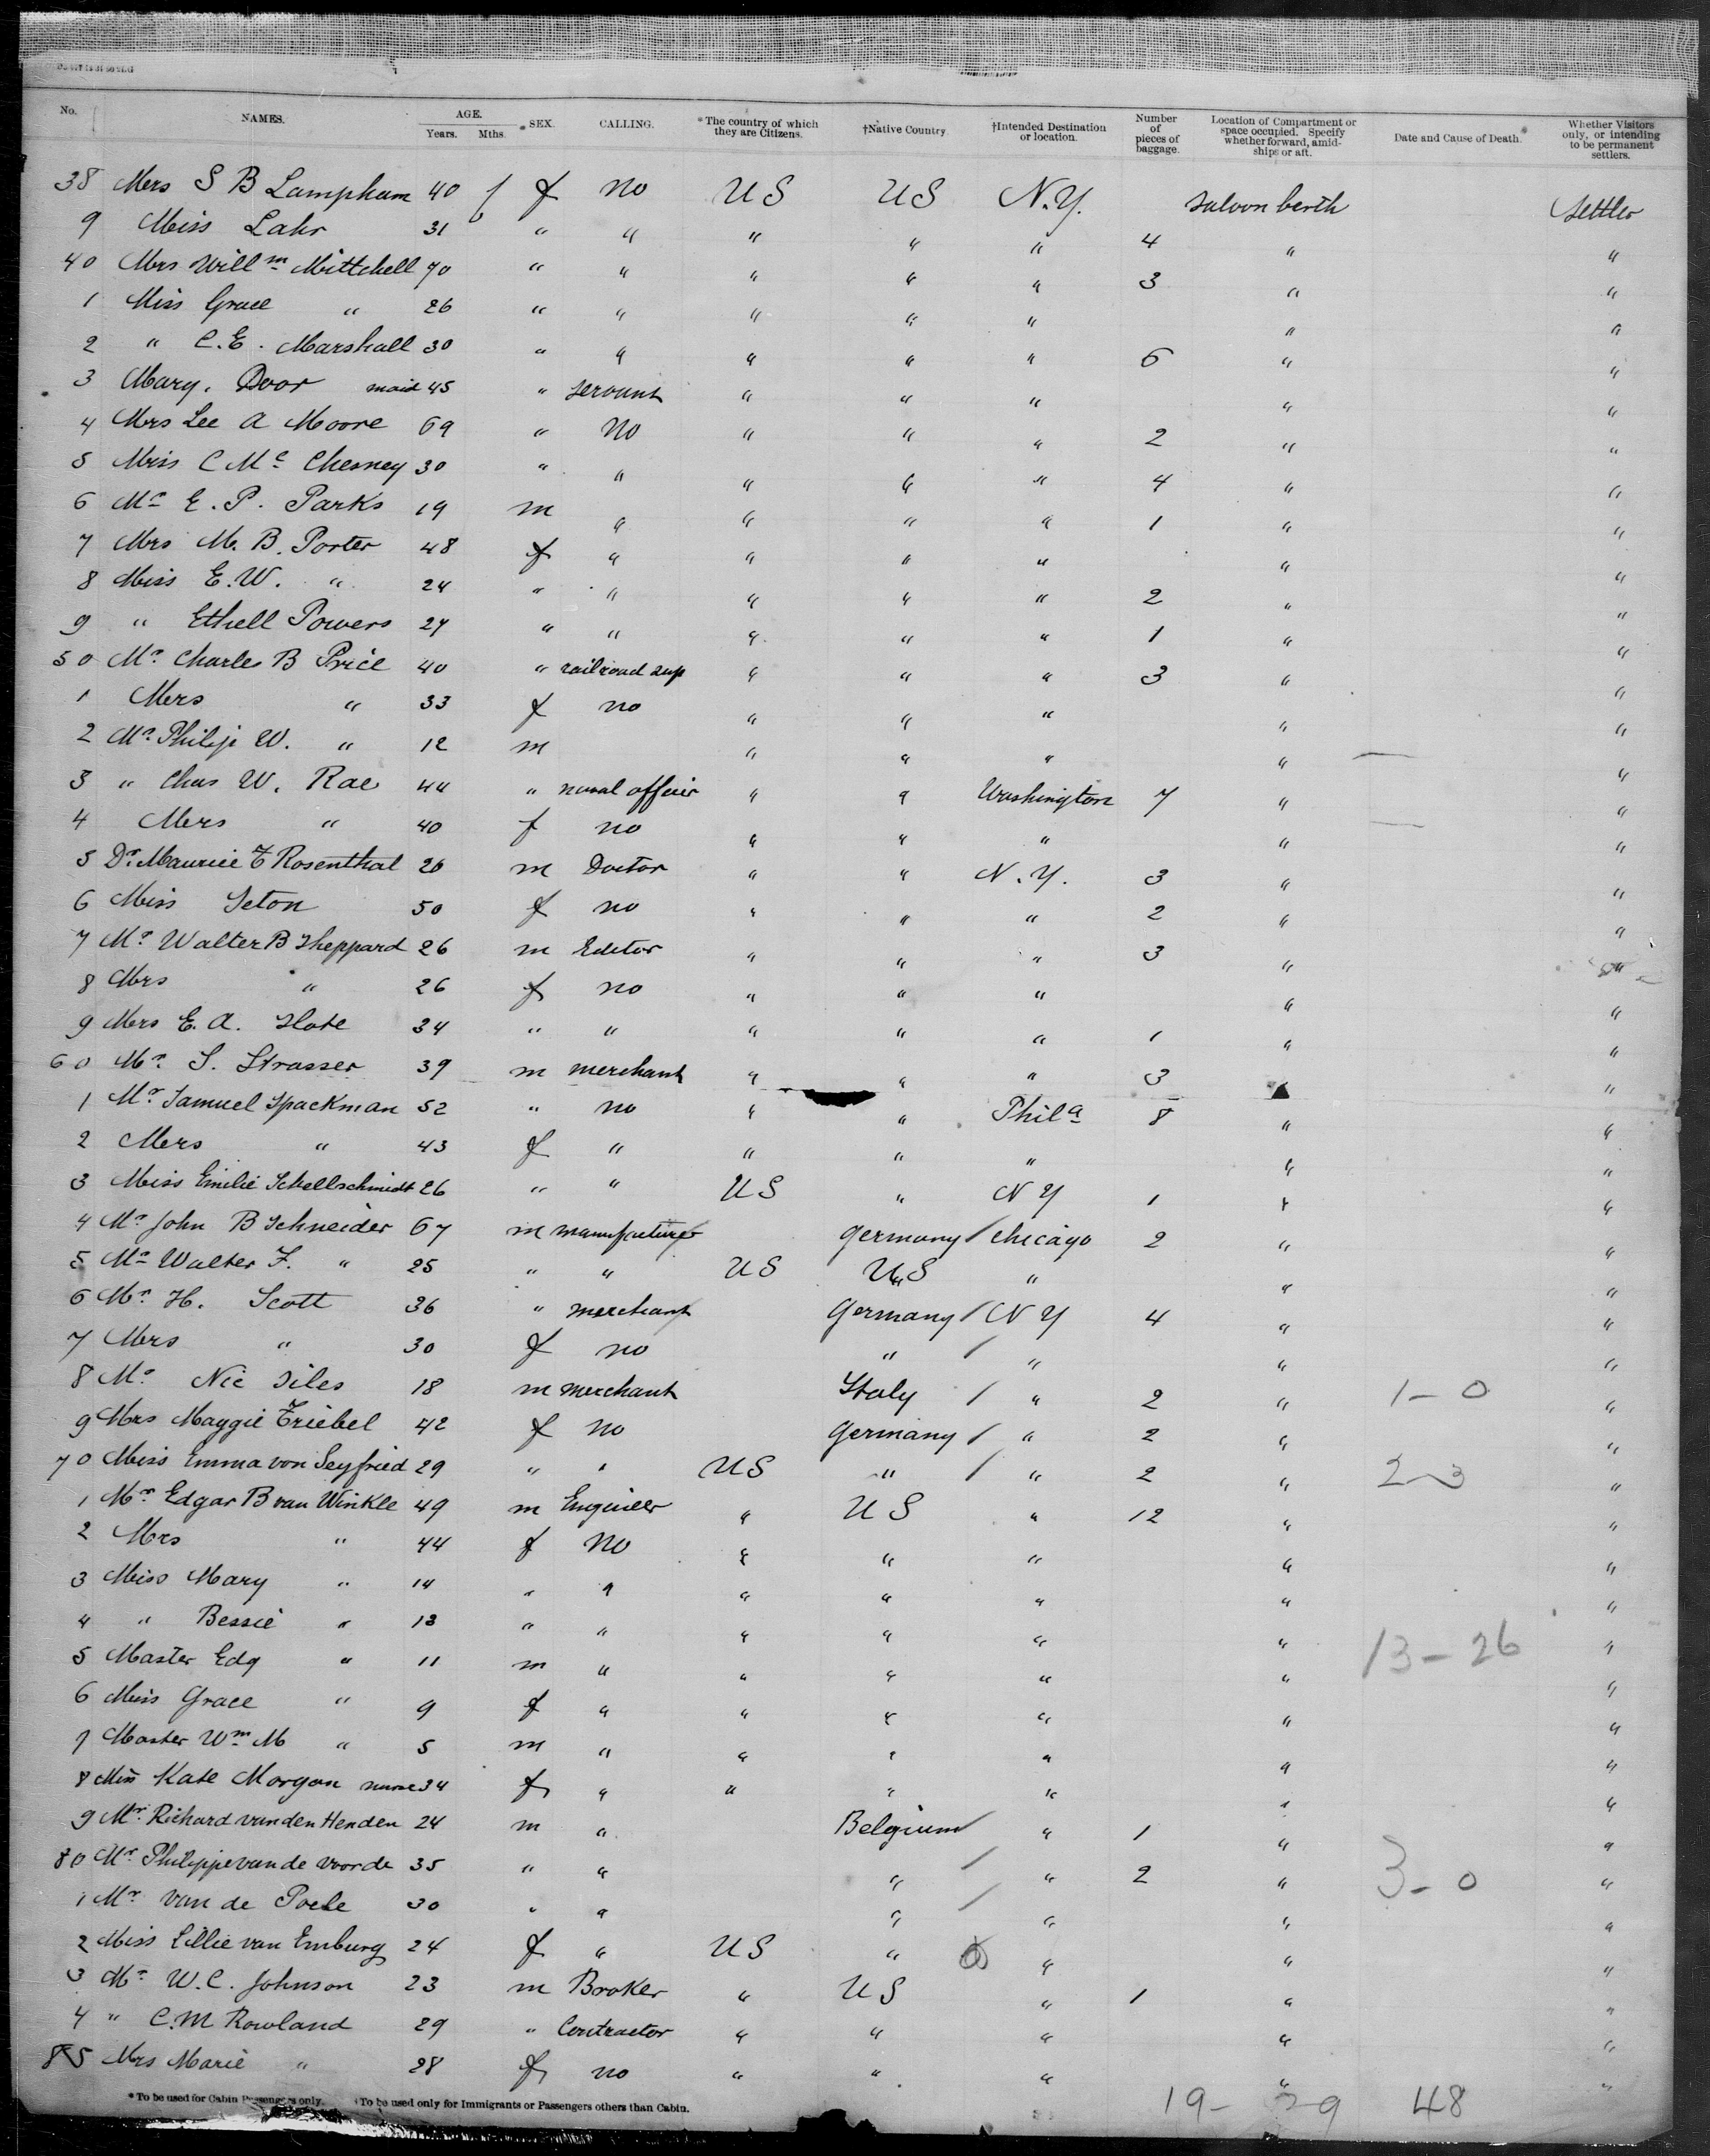 No. NAMES. AGE. Years. Mths. SEX. CALLING. *The country of which they are Citizens. †Native Country. †Intended Destination or location. Number of pieces of baggage. Location of Compartment or space occupied. Specify whether forward, amidships or aft. Date and Cause of Death. Whether Visitors only, or intending to be permanent settlers.
38 Mers S B Lampham 40 f no US US N.Y. saloon berth Settler
9 Miss Lahr 31 " " " " " 4 " "
40 Mrs Will m Mittchell 70 " " " " " 3 " "
1 Miss Grace " 26 " " " " " " "
2 " C.E. Marshall 30 " " " " " 6 " "
3 Mary. Door maid 45 " servant " " " " "
4 Mrs Lee A Moore 69 " no " " " 2 " "
5 Miss C Mc Chesney 30 " " " " " 4 " "
6 Mr E. P. Parks 19 m " " " " 1 " "
7 Mrs M. B. Porter 48 f " " " " " "
8 Miss E.W. " 24 " " " " " 2 " "
9 " Ethell Powers 27 " " " " " 1 " "
50 Mr Charles B Price 40 " railroad sup " " " 3 " "
1 Mers " 33 f no " " " " "
2 Mr Philip W. " 12 m " " " " "
3 " Chas W. Rae 44 " naval officer " " Washington 7 " "
4 Mers " 40 f no " " " " "
5 Dr. Maurice T Rosenthal 26 m Doctor " " N.Y. 3 " "
6 Miss Seton 50 f no " " " 2 " "
7 Mr Walter B Sheppard 26 m Editor " " " 3 " "
8 Mrs " 26 f no " " " " "
9 Mers E. A. Slote 34 " " " " " 1 " "
60 Mr S. Strasser 39 m merchant " " " 3 "
1 Mr Samuel Spackman 52 " no " " Phila 8 " "
2 Mers " 43 f " " " " " "
3 Miss Emilie Schellschmidt 26 " " US " N Y 1 " "
4 Mr John B Schneider 67 m manufacturer Germany / Chicago 2 " "
5 Mr Walter F. " 25 " " US US " " "
6 Mr H. Scott 36 " merchant Germany / N Y 4 " "
7 Mers " 30 f no " / " " "
8 Mr Nic Siles 18 m merchant Italy / " 2 " 1-0 "
9 Mrs Maggie Triebel 42 f no Germany / " 2 " "
70 Miss Emma von Seyfried 29 " " US " / " 2 " 2-3 "
1 Mr Edgar B van Winkle 49 m Engineer " US " 12 " "
2 Mrs " 44 f no " " " " "
3 Miss Mary " 14 " " " " " " "
4 " Bessie " 13 " " " " " " "
5 Master Edg " 11 m " " " " " 13-26 "
6 Miss Grace " 9 f " " " " " "
7 Master Wm M " 5 m " " " " " "
8 Miss Kate Morgan nurse 34 f " " " " " "
9 Mr Richard van den Henden 24 m " Belgium / " 1 " "
80 Mr Philippe van de Voorde 35 " " " / " 2 " 3-0 "
1 Mr van de Poele 30 " " " / " " "
2 Miss Lillie van Emburg 24 f " US " " " "
3 Mr W. C. Johnson 23 m Broker " US " 1 " "
4 " C.M Rowland 29 " Contractor " " " " "
85 Mrs Marie " 28 f no " " " " "
*To be used for Cabin Passengers only. †To be used only for Immigrants or Passengers others than Cabin.
19- 29 48